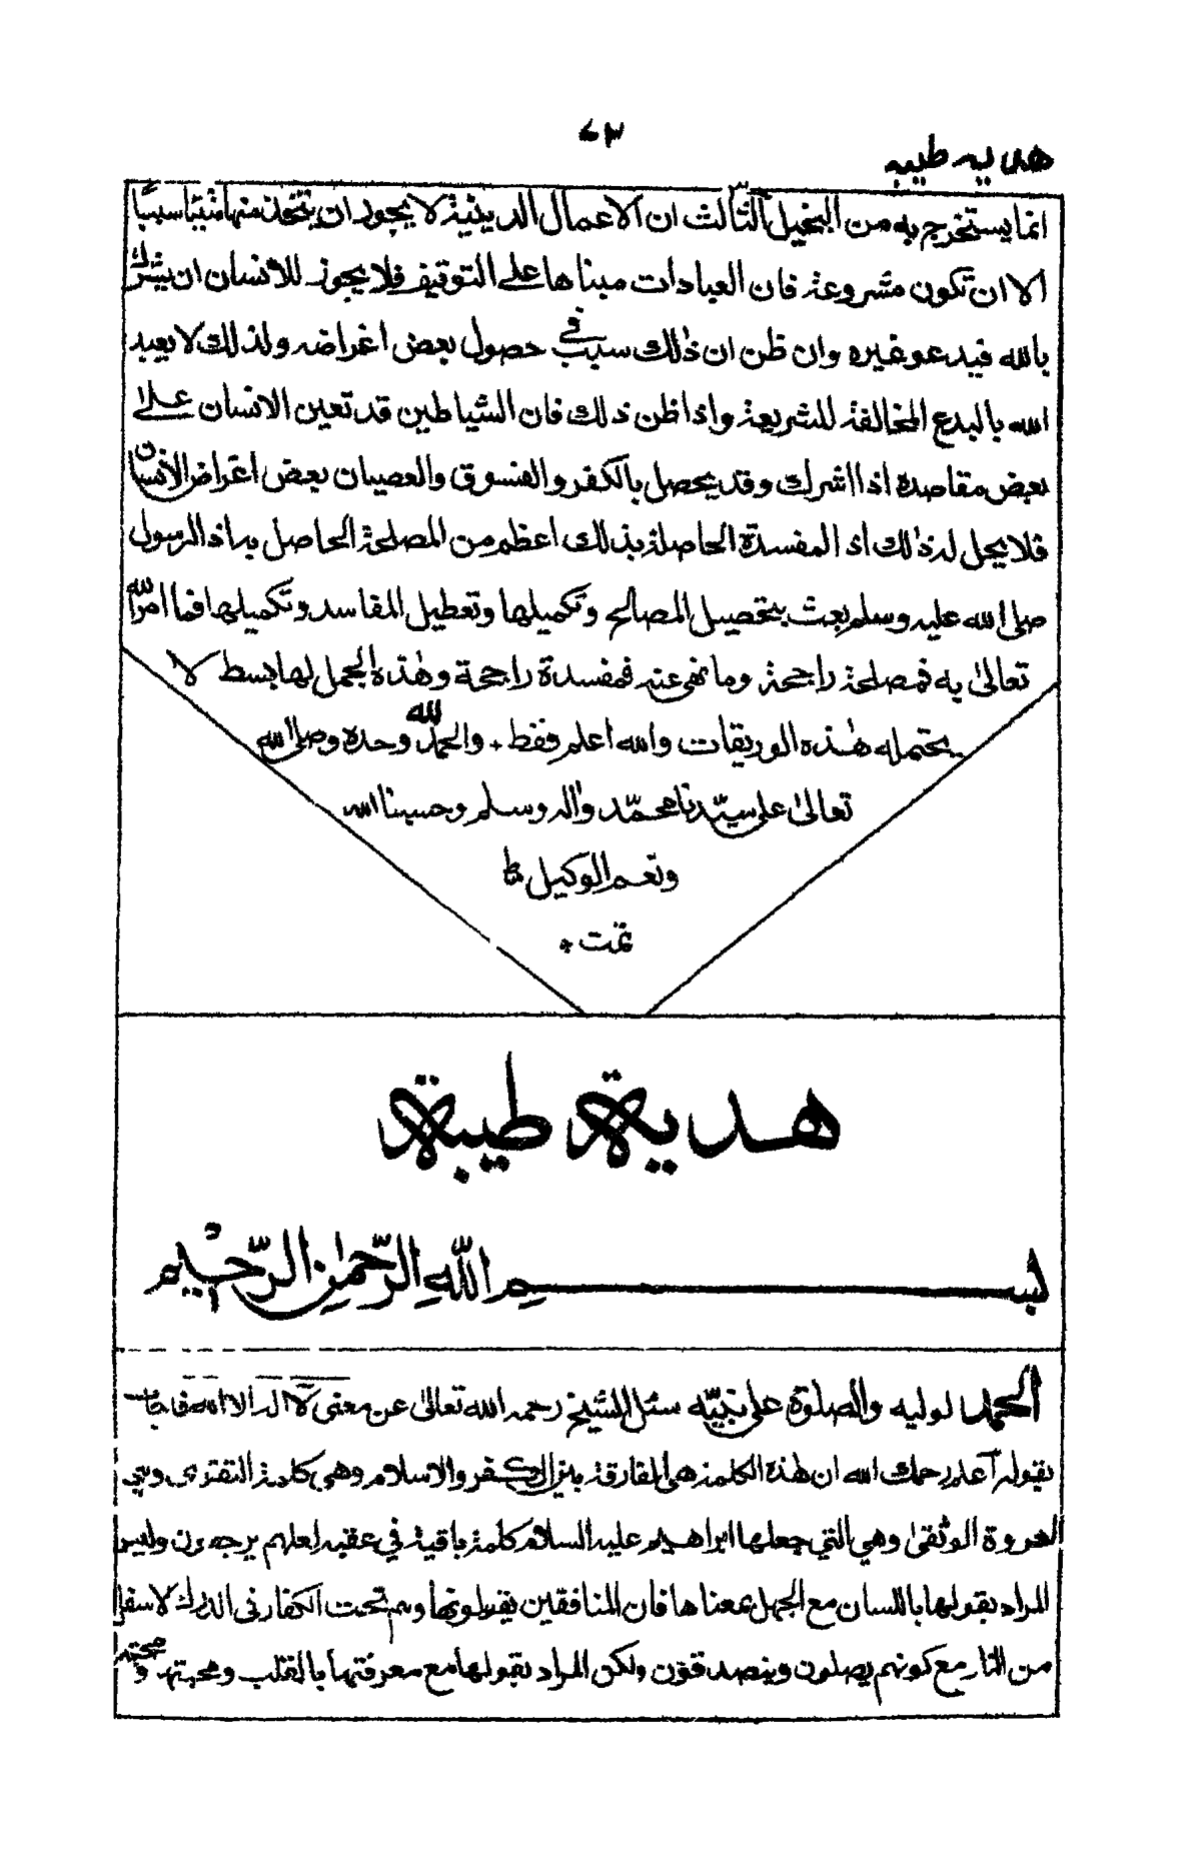 ٤٣
هديه طيبه
انما يستخرج به من البخيل الثالث ان الاعمال الدينية لا يجوز ان يتخذ منها شيئا سببا
الا ان تكون مشروعة فان العبادات مبناها على التوقيف فلا يجوز للانسان ان يشرك
بالله فيدعو غيره وان ظن ان ذلك سبب في حصول بعض اغراضه ولذلك لا يعبد
الله بالبدع المخالفة للشريعة واذا ظن ذلك فان الشياطين قد تعين الانسان على
بعض مقاصده اذا اشرك وقد يحصل بالكفر والفسوق والعصيان بعض اغراض الانسان
فلا يحل له ذلك اذ المفسدة الحاصلة بذلك اعظم من المصلحة الحاصل به اذ الرسول
صلى الله عليه وسلم بعث بتحصيل المصالح وتكميلها وتعطيل المفاسد وتكميلها فما امر الله
تعالىٰ به فمصلحة راجحة وما نهى عنه فمفسدة راجحة وهٰذه الجمل لها بسط لا
يحتمله هٰذه الوريقات والله اعلم فقط + والحمد لله وحده وصلى الله
تعالىٰ على سيّدنا محمّد واله وسلم وحسبنا الله
ونعم الوكيل ط
تمت +
هدية طيبة
بسم اللّٰهِ الرّحمٰنِ الرّحِيْمِ
الحمد لوليه والصلوة على نبيّه سئل الشيخ رحمه الله تعالىٰ عن معنى لآ اله الا الله فاجاب
بقوله آعلم رحمك الله ان هٰذه الكلمة هى الفارقة بين الكفر والاسلام وهى كلمة التقوى وهى
العروة الوثقىٰ وهى التي جعلها ابراهيم عليه السلام كلمة باقية في عقبه لعلهم يرجعون وليس
المراد بقولها باللسان مع الجهل بمعناها فان المنافقين يقولونها وهم تحت الكفار فى الدرك الاسفل
من النار مع كونهم يصلون ويتصدقون ولكن المراد بقولها مع معرفتها بالقلب ومحبتها ومحبة